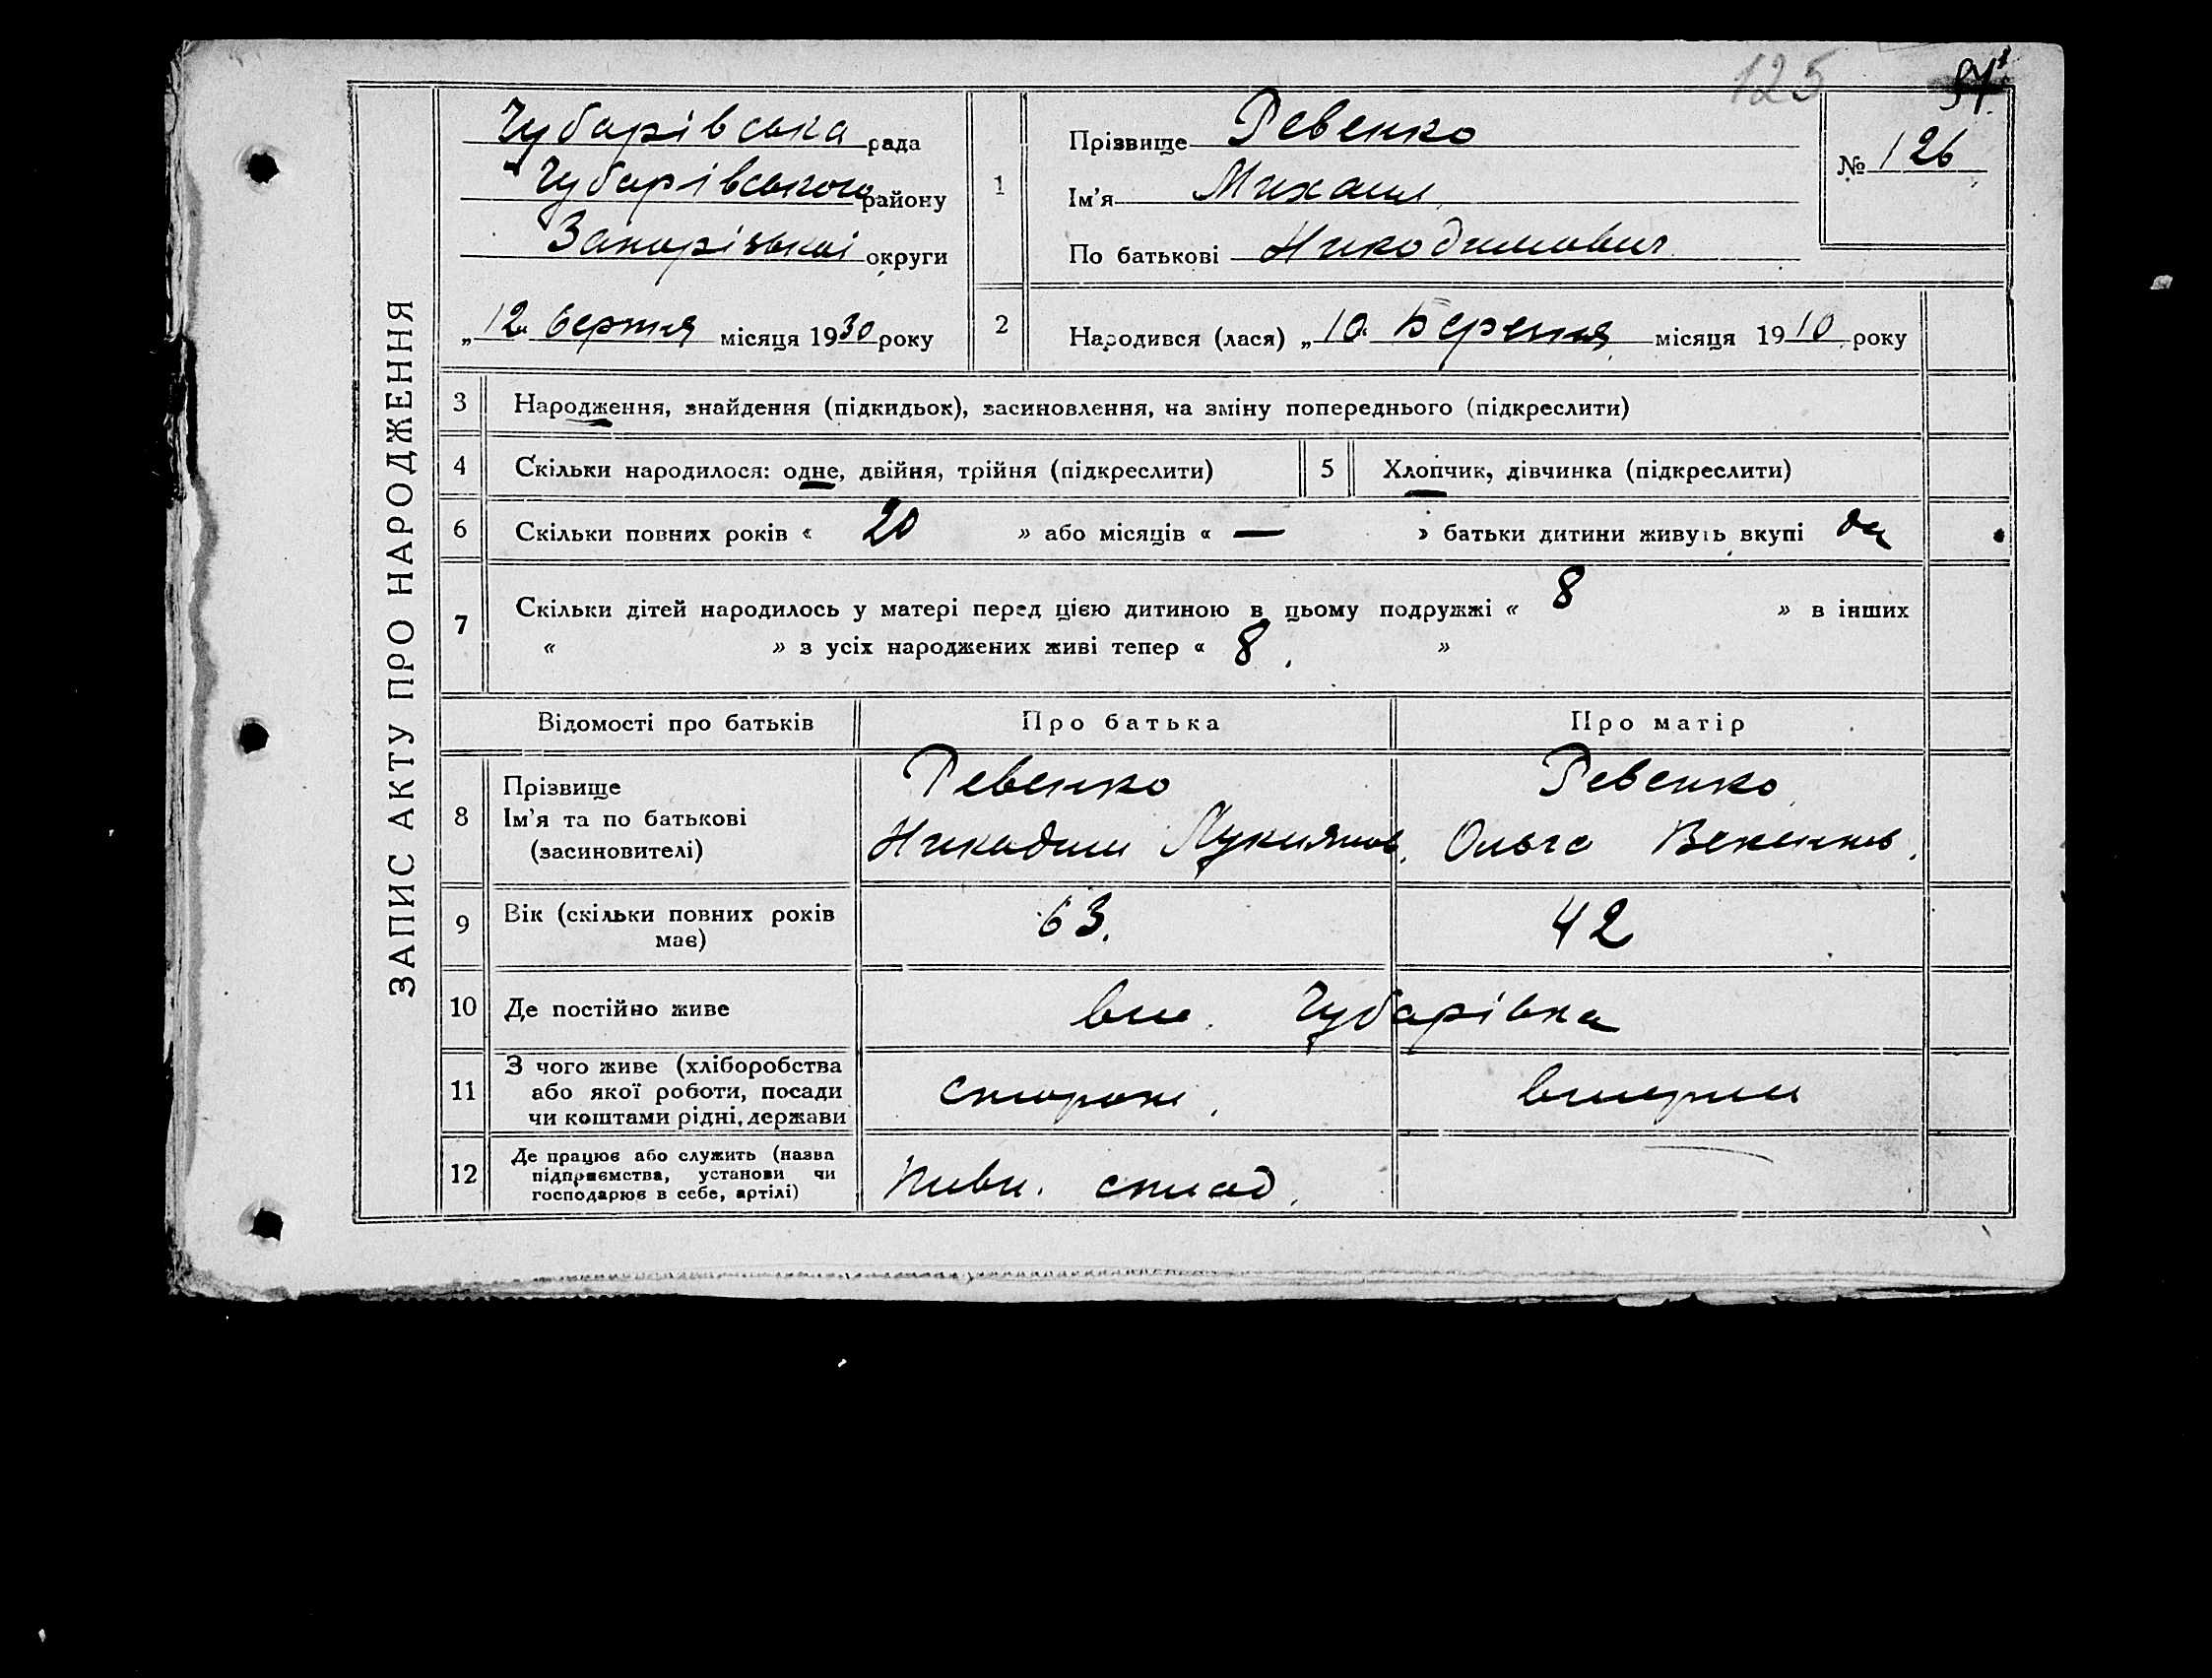 125
№ 126
ЗАПИС АКТУ ПРО НАРОДЖЕННЯ
Чубарівська рада
Чубарівського району
Запорізької округи
„12“ серпня місяця 1930 року
1
Прізвище Ревенко
Ім’я Михаил
По батькові Никодимович
2
Народився (лася) „10“ Березня місяця 1910 року
3 Народження, знайдення (підкидьок), засиновлення, на зміну попереднього (підкреслити)
4 Скільки народилося: одне, двійня, трійня (підкреслити) 5 Хлопчик, дівчинка (підкреслити)
6 Скільки повних років « 20 » або місяців « — » батьки дитини живуть вкупі да
7 Скільки дітей народилось у матері перед цією дитиною в цьому подружжі « 8 » в інших
« » з усіх народжених живі тепер « 8 »
Відомості про батьків Про батька Про матір
8 Прізвище Ревенко Ревенко
Ім’я та по батькові Никадим Лукиянов. Ольга
(засиновителі)
9 Вік (скільки повних років має) 63. 42
10 Де постійно живе Чубарівка
11 З чого живе (хліборобства
або якої роботи, посади
чи коштами рідні, держави сторож.
12 Де працює або служить (назва
підприємства, установи чи
господарює в себе, артілі) склад.